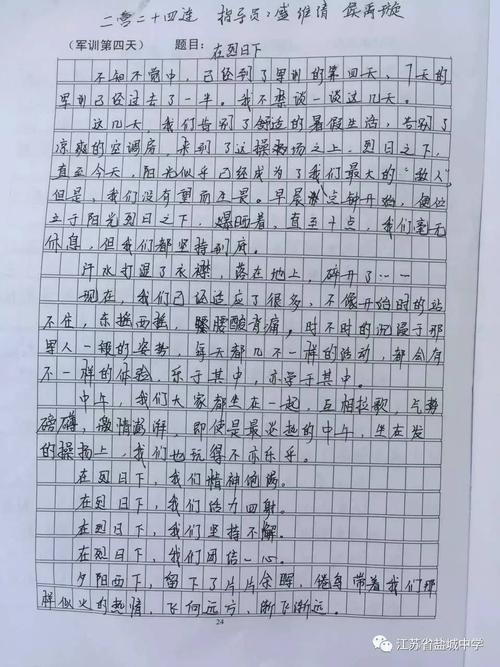 二营二十四连 指导员：盛维清 侯禹璇
（军训第四天） 题目：在烈日下
不知不觉中，已经到了军训的第四天，7天的
军训已经过去了一半。我不禁谈一谈这几天。
这几天，我们告别了舒适的暑假生活，告别了
凉爽的空调房，来到了这操场之上，烈日之下，
直至今天，阳光似乎已经成为了我们最大的“敌人”
但是，我们没有望而生畏。早晨八点钟开始，便位
立于阳光烈日之下，爆晒着，直至十点，我们毫无
休息，但我们都坚持到底。
汗水打湿了衣襟，落在地上，碎开了……
现在，我们已经适应了很多，不像开始时的站
不住，东摇西摇，腰酸背痛，时不时的沉浸于那
军人一般的姿势，每天都几不一样的活动，都会有
不一样的体验，乐于其中，亦享于其中。
中午，我们大家都坐在一起，互相拉歌，气势
磅礴，激情澎湃，即使是最炎热的中午，坐在发
的操场上，我们也玩得不亦乐乎。
在烈日下，我们精神饱满。
在烈日下，我们活力四射。
在烈日下，我们坚持不懈。
在烈日下，我们团结一心。
夕阳西下，留下了片片余晖，倦鸟带着我们那
样似火的热情，飞向远方，渐飞渐远。
24
江苏省盐城中学